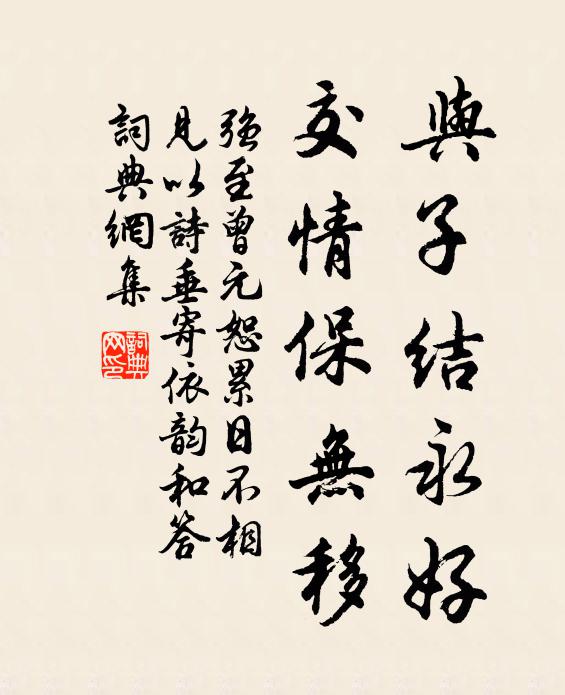 與子結永好
交情保無移
强至曾元恕累日不相
見以詩垂寄依韵和答
詞典網集
詞典網印